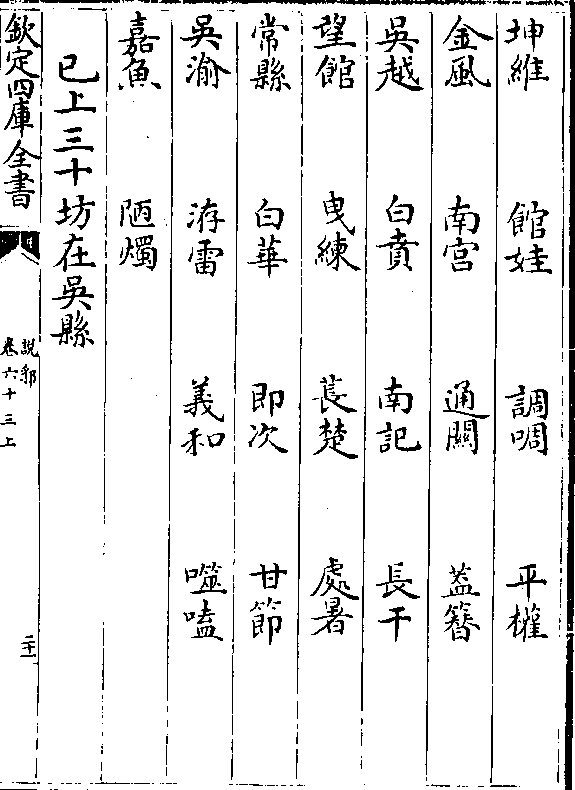 坤維 館娃 調啁 平權
金風 南宮 通闗 葢簪
吳越 白賁 南記 長干
望館 曵練 萇楚 處暑
常縣 白華 即次 甘節
吳渝 洊雷 義和 噬嗑
嘉魚 陋燭
已上三十坊在吳縣
欽定四庫全書
說郛
卷六十三上